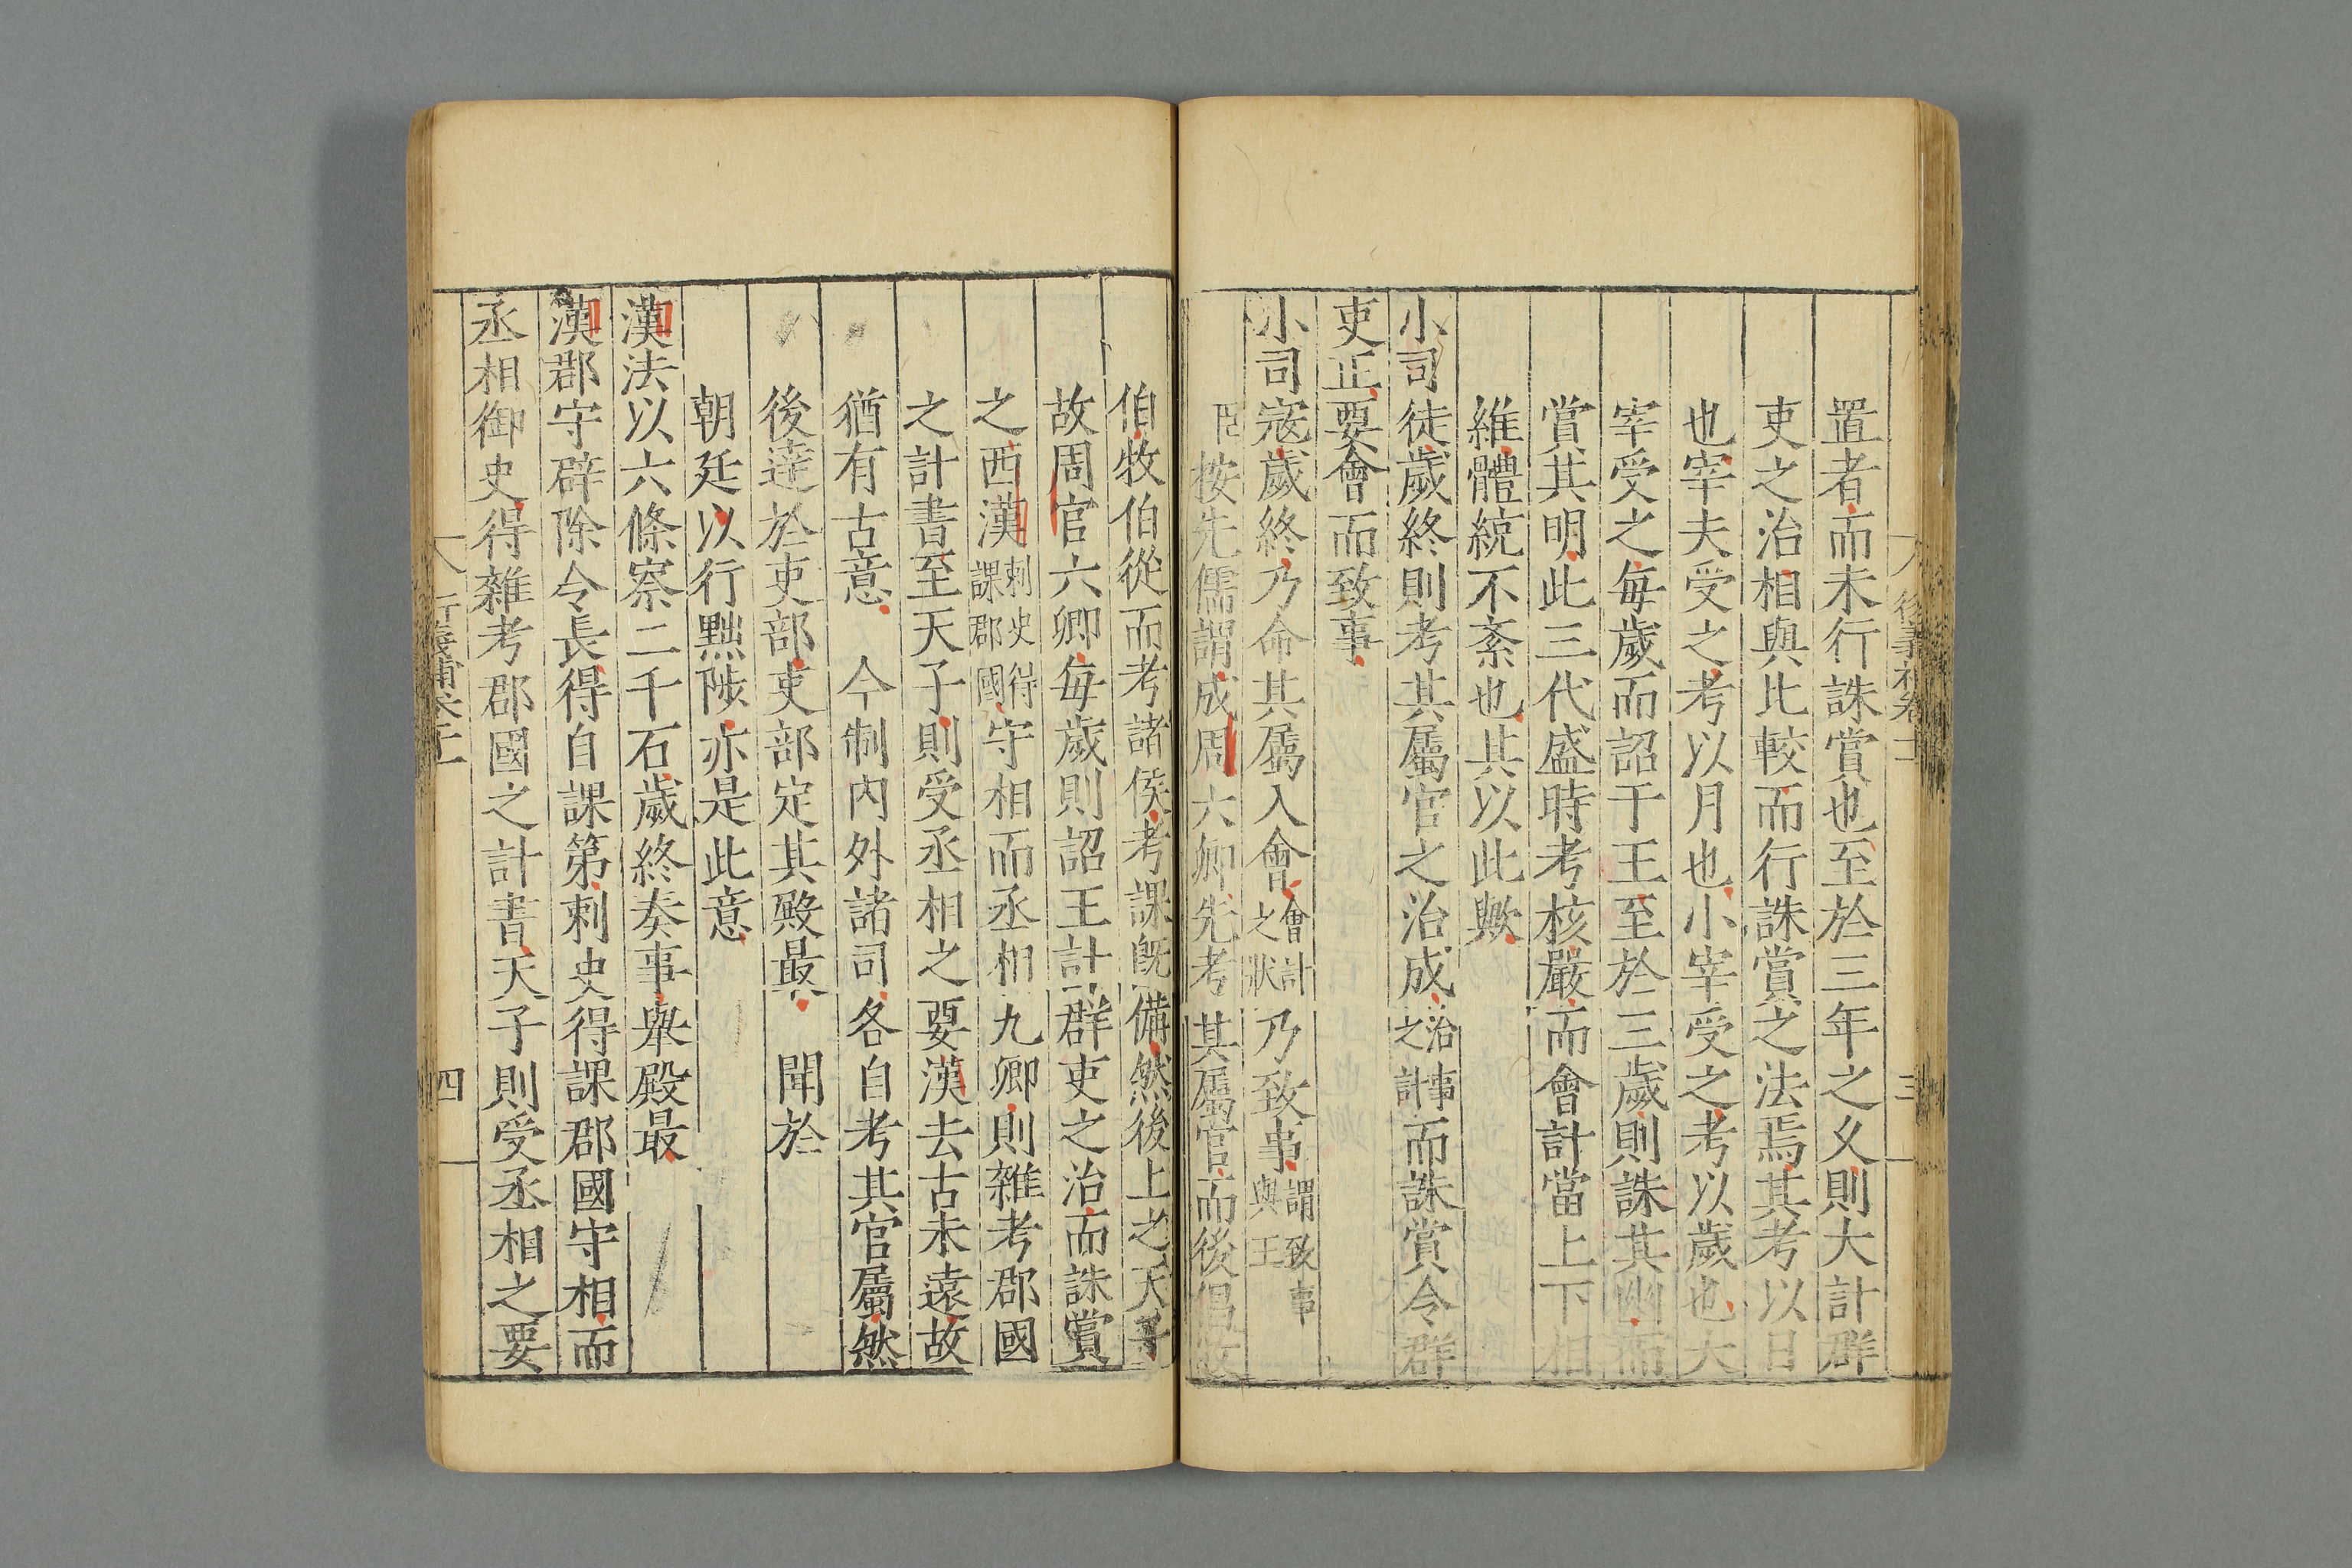 置者而未行誅賞也至於三年之久則大計群
吏之治相與比較而行誅賞之法焉其考以日
也宰夫受之考以月也小宰受之考以歲也大
宰受之每歲而詔于王至於三歲則誅其幽而
賞其明此三代盛時考核嚴而會計當上下相
維體統不紊也其以此歟
小司徒歲終則考其屬官之治成治事之計而誅賞令群
吏正要會而致事
小司寇歲終乃命其屬入會會計之狀乃致事謂致事與王
臣按先儒謂成周六卿先考其屬官而後倡牧
伯牧伯從而考諸侯考課既備然後上之天子
故周官六卿每歲則詔王計群吏之治而誅賞
之西漢刺史得課郡國守相而丞相九卿則雜考郡國
之計書至天子則受丞相之要漢去古未遠故
猶有古意今制內外諸司各自考其官屬然
後達於吏部吏部定其殿最聞於
朝廷以行黜陟亦是此意
漢法以六條察二千石歲終奏事舉殿最
漢郡守辟除令長得自課第刺史得課郡國守相而
丞相御史得雜考郡國之計書天子則受丞相之要
四